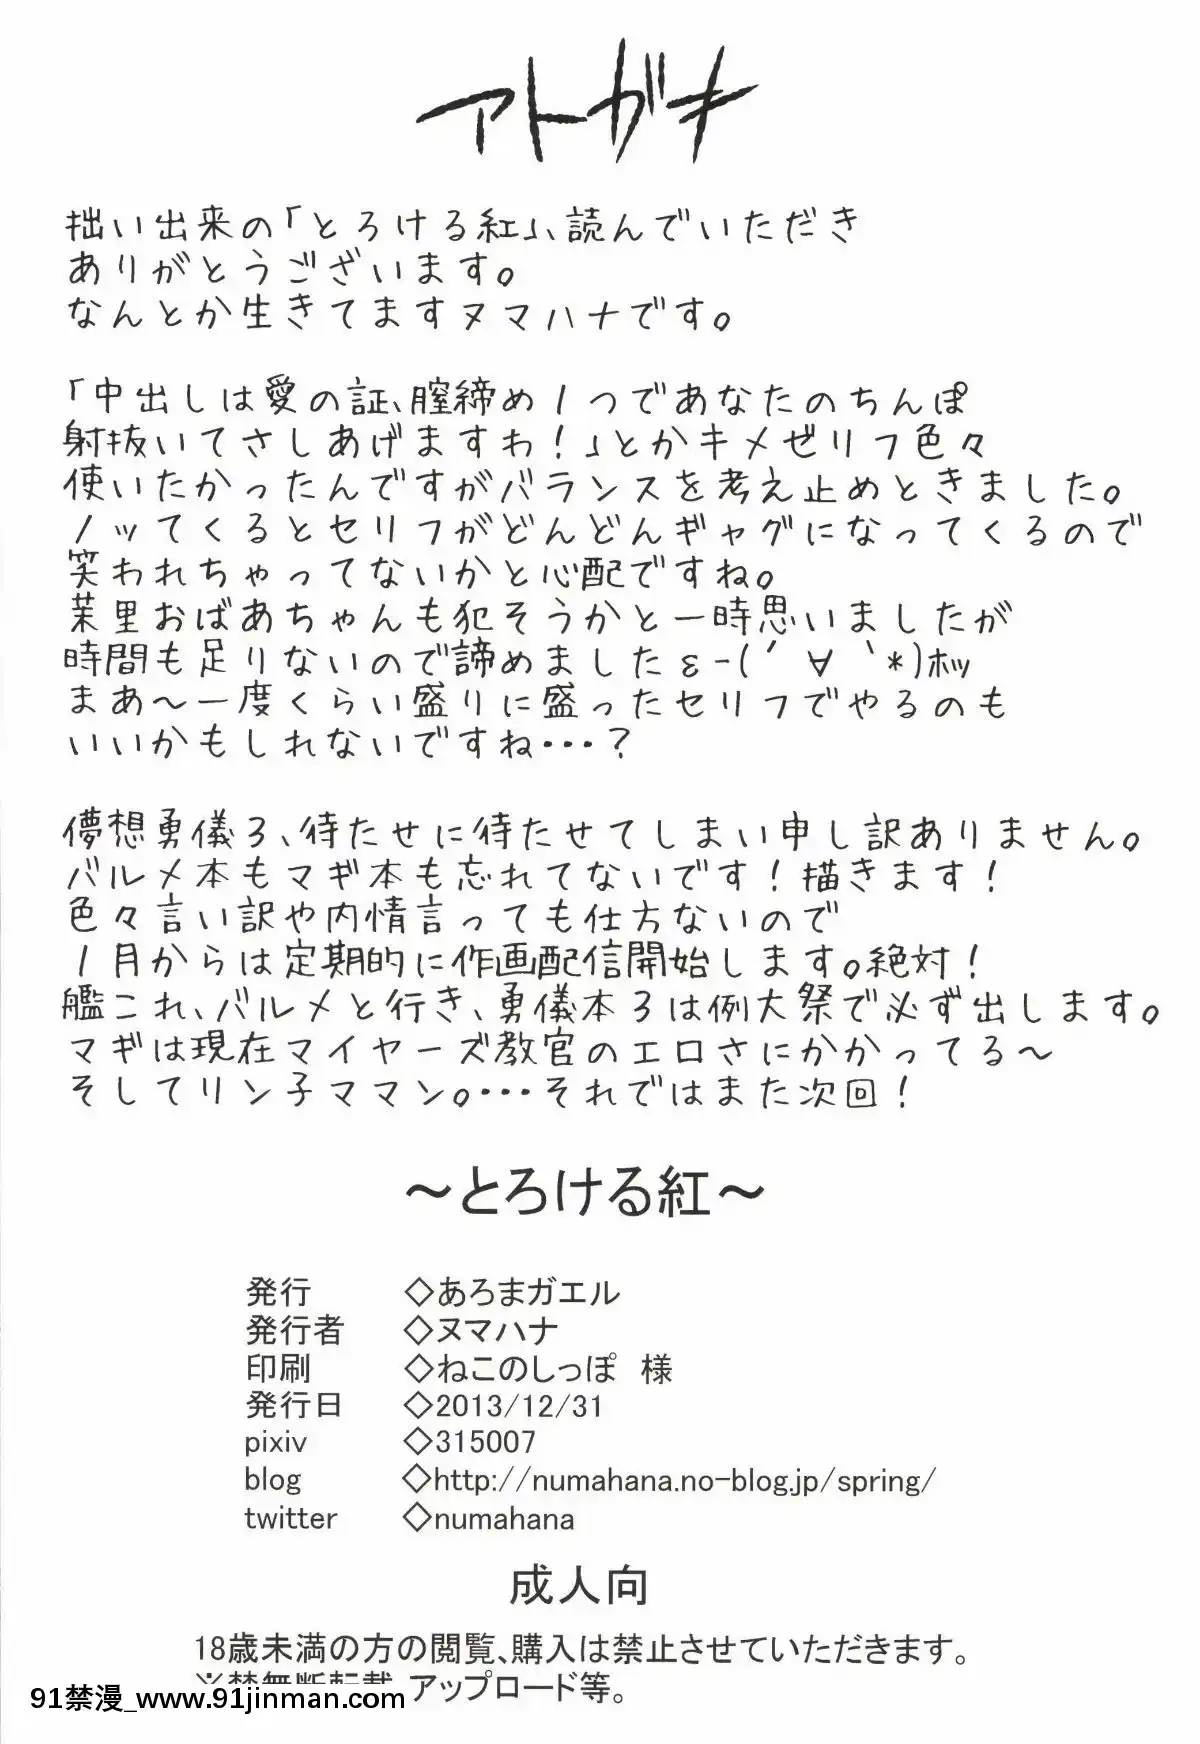 アトガキ
拙い出来の「とろける紅」、読んでいただき
ありがとうございます。
なんとか生きてますヌマハナです。
「中出しは愛の証、膣締め1つであなたのちんぽ
射抜いてさしあげますわ!」とかキメゼリフ色々
使いたかったんですがバランスを考え止めときました。
ノッてくるとセリフがどんどんギャグになってくるので
笑われちゃってないかと心配ですね。
茉里おばあちゃんも犯そうかと一時思いましたが
時間も足りないので諦めましたε-(´∀`*)ホッ
まあ~一度くらい盛りに盛ったセリフでやるのも
いいかもしれないですね・・・?
儚想勇儀3、待たせに待たせてしまい申し訳ありません。
バルメ本もマギ本も忘れてないです!描きます!
色々言い訳や内情言っても仕方ないので
1月からは定期的に作画配信開始します。絶対!
艦これ、バルメと行き、勇儀本3は例大祭で必ず出します。
マギは現在マイヤーズ教官のエロさにかかってる~
そしてリン子ママン。・・・それではまた次回!
~とろける紅~
発行 ◇あろまガエル
発行者 ◇ヌマハナ
印刷 ◇ねこのしっぽ 様
発行日 ◇2013/12/31
pixiv ◇315007
blog ◇http://numahana.no-blog.jp/spring/
twitter ◇numahana
成人向
18歳未満の方の閲覧、購入は禁止させていただきます。
※禁無断転載 アップロード等。
91禁漫_www.91jinman.com